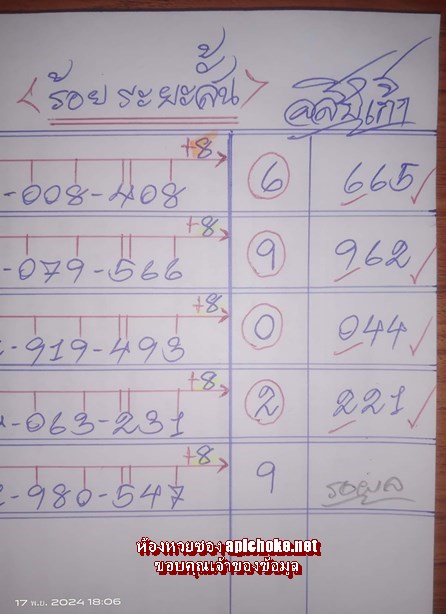 <ร้อย ระยะสั้น>
+8
-008-408 6 665
+8
-079-566 9 962
+8
-919-493 0 044
+8
-063-231 2 221
+8
-980-547 9 รอผล
ห้องหวยซอง aplchoke.net
ขอบคุณเจ้าของข้อมูล
17 พ.ย. 2024 18:06